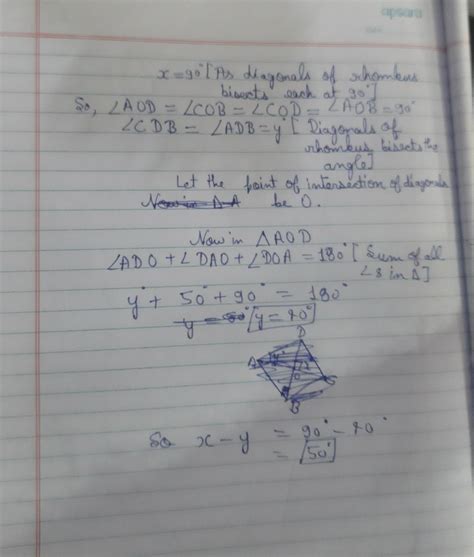 apsara
x = 90° [As diagonals of rhombus
bisects each at 90°]
So, ∠AOD = ∠COB = ∠COD = ∠AOB = 90°
∠CDB = ∠ADB = y° [Diagonals of
rhombus bisects the
angle]
Let the point of intersection of diagonals
Now in Δ A be O.
Now in ΔAOD
∠ADO + ∠DAO + ∠DOA = 180° [Sum of all
∠s in Δ]
y° + 50° + 90° = 180°
y = 20°
D
A
B
So x - y = 90° - 20°
= 50°